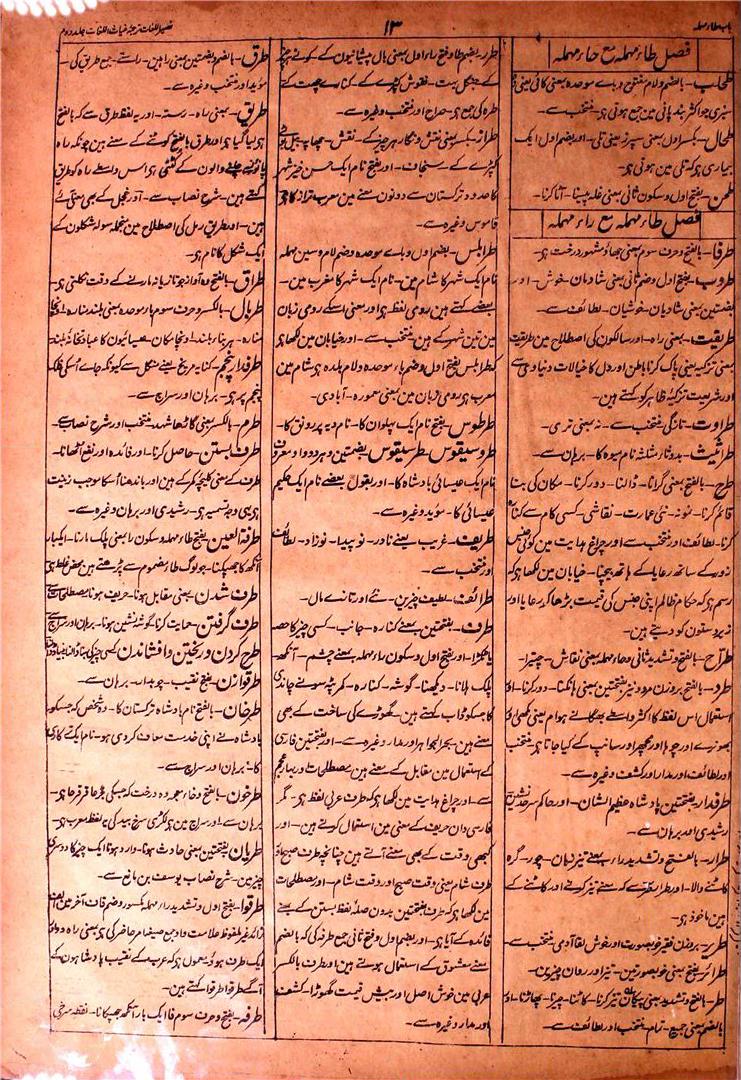 باب طاء مہملہ
۱۳
فصیل اللغات ترجمۂ غیاث اللغات جلد دوم
فصل طاء مہملہ مع حاء مہملہ
طحلب۔ بالضم ولام مفتوح و باے موحدہ بمعنی کائی یعنی وہ
سبزی جو اکثر بند پانی مین جمع ہوتی ہو۔ منتخب سے۔
طحال۔ بکسر اول بمعنی سپرز یعنی تلی۔ اور بضم اول ایک
بیماری ہو کہ تلی مین ہوتی ہو۔
طحن۔ بفتح اول و سکون ثانی بمعنی غلہ پیسنا۔ آٹا کرنا۔
فصل طاء مہملہ مع راء مہملہ
طرفا۔ بالفتح و حرف سوم بمعنی جھاؤ مشہور درخت ہو۔
طروب۔ بفتح اول و ضم ثانی بمعنی شادمان۔ خوش۔ اور
بضمتین بمعنی شادیان۔ خوشیان۔ لطائف سے۔
طریقت۔ بمعنی راہ۔ اور سالکون کی اصطلاح مین طریقت
بمعنی تزکیہ یعنی پاک کرنا باطن اور دل کا خیالات دنیاوی سے
اور شریعت تزکیۂ ظاہر کو کہتے ہین۔
طراوت۔ تازگی منتخب سے۔ نہ بمعنی تری۔
طراثیث۔ بدو ثاء مثلثہ نام میوہ کا۔ برہان سے۔
طرح۔ بالفتح بمعنی گرانا۔ ڈالنا۔ دور کرنا۔ مکان کی بنا
قائم کرنا۔ نمونہ۔ نئی عمارت۔ نقاشی۔ کسی کام سے کنارہ
کرنا۔ لطائف اور منتخب سے اور چراغ ہدایت مین کوئی جنس
زور کے ساتھ رعایا کے ہاتھ بیچنا۔ خیابان مین لکھا ہو کہ
رسم ہو کہ حکام ظالم اپنی جنس کی قیمت بڑھا کر رعایا اور
زیردستون کو دیتے ہین۔
طراح۔ بالفتح و تشدید ثانی و حاء مہملہ بمعنی نقاش۔ چتیرا۔
طرد۔ بالفتح بروزن مرد و نیز بفتحتین بمعنی ہانکنا۔ دور کرنا۔ اور
استعمال اس لفظ کا اکثر واسطے بھگانے ہوام یعنی مکھی اور
بھونرے اور چوہا اور مچھر اور سانپ کے کیا جاتا ہو منتخب
اور لطائف اور مدار اور کشف وغیرہ سے۔
طرفدار۔ بفتحتین بادشاہ عظیم الشان۔ اور حاکم سرحد نشین
رشیدی اور برہان سے۔
طرار۔ بالفتح و تشدید راء بمعنی تیز زبان۔ چور۔ گرہ
کاٹنے والا۔ اور طرار طرہ سے کہ بمعنی تیز کرنے اور کاٹنے کے
ہین ماخوذ ہو۔
طریر۔ بروزن فقیر خوبصورت اور خوش لقا آدمی منتخب سے۔
طرائر۔ بفتح بمعنی خوبصورتین۔ تیز اور روان چیزین۔
طر۔ بالفتح و تشدید بمعنی پیکان تیز کرنا۔ کاٹنا۔ چیرنا۔ پھاڑنا۔ اور
بالضم بمعنی جمیع۔ تمام۔ منتخب اور لطائف سے۔
طرر۔ بضم طا و فتح راء اول بمعنی بال پیشانیون کے کونے ہر چیز
طرہ کی جمع ہو۔ صراح اور منتخب وغیرہ سے۔
طراز۔ بکسر بمعنی نقش و نگار ہر چیز کے۔ نقش۔ چھاپ بیل بوٹے
کپڑے کے۔ سنجاف۔ اور بفتح نام ایک حسن خیز شہر
کا حدود ترکستان سے دونون معنے مین معرب تراز کا ہو
قاموس وغیرہ سے۔
طرابلس۔ بضم اول و باے موحدہ و ضم لام و سین مہملہ
نام ایک شہر کا شام مین۔ نام ایک شہر کا مغرب مین۔
بعضے کہتے ہین رومی لفظ ہو اور معنی اسکے رومی زبان
مین تین شہر کے ہین منتخب سے۔ اور خیابان مین لکھا ہو
کہ طرابلس بفتح اول و ضم باء موحدہ و لام بلدہ ہو شام مین
معرب ہو رومی زبان مین بمعنی معمورہ۔ آبادی۔
طرطوس۔ بفتح نام ایک پہلوان کا۔ نام دیہ پر رونق کا۔
طروسیقوس۔ طرسیقوس بضمتین و ہر دو واو معروف
نام ایک عیسائی بادشاہ کا۔ اور بقول بعضے نام ایک حکیم
عیسائی کا۔ مؤید وغیرہ سے۔
طریف۔ غریب یعنے نادر۔ نو پیدا۔ نوزاد۔ لطائف
اور منتخب سے۔
طرائف۔ لطیف چیزین۔ نئے اور تازے مال۔
طرف۔ بفتحتین بمعنے کنارہ۔ جانب۔ کسی چیز کا حصہ
یا ٹکڑا۔ اور بفتح اول و سکون راء مہملہ بمعنے چشم۔ آنکھ۔
پلک ہلانا۔ دیکھنا۔ گوشہ۔ کنارہ۔ کمر پٹہ سونے چاندی
کا جسکو ڈاب کہتے ہین۔ گھوڑے کی ساخت کے بھی
معنے ہین بحر الجواہر اور مدار وغیرہ سے۔ اور بفتحتین فارسی
کے استعمال مین مقابل کے معنے ہین مصطلحات و بہار عجم
سے۔ اور چراغ ہدایت مین لکھا ہو کہ طرف عربی لفظ ہو۔ مگر
فارسی دان حریف کے معنی مین استعمال کرتے ہین۔ اور
کبھی وقت کے بھی معنے آتے ہین چنانچہ طرف صبح اور
طرف شام بمعنی وقت صبح اور وقت شام۔ اور مصطلحات
مین لکھا ہو کہ طرف بفتحتین بدون صلہ لفظ بستن کے بمعنے
فائدہ کے آیا ہو۔ اور بضم اول و فتح ثانی جمع طرفہ کی کہ بالضم
بمعنے معشوق کے استعمال ہوتے ہین اور طرف بالکسر
عربی مین خوش اصل اور بیش قیمت گھوڑا۔ کشف
اور مدار وغیرہ سے۔
طرق۔ بالضم و بضمتین بمعنی راہین۔ راستے۔ جمع طریق کی۔
مؤید اور منتخب وغیرہ سے۔
طریق۔ بمعنی راہ۔ رستہ۔ اور یہ لفظ طرق سے کہ بالفتح
ہو لیا گیا ہو اور طرق بالفتح کوٹنے کے معنے ہین چونکہ راہ
پاؤن سے چلنے والون کے کٹتی ہو اس واسطے راہ کو طریق
کہتے ہین۔ شرح نصاب سے۔
ہین۔ اور طریق رمل کی اصطلاح مین منجملہ سولہ شکلون کے
ایک شکل کا نام ہو۔
طراق۔ بالفتح وہ آواز جو تازیانہ مارنے کے وقت نکلتی ہو۔
طربال۔ بالکسر و حرف سوم باء موحدہ بمعنی بلند منارہ۔ اونچا
منارہ۔ ہر بناء بلند۔ اونچا مکان۔ عیسائیون کا عبادتخانہ بلند
طرفدار پنجم۔ کنایہ مریخ یعنے منگل سے کیونکہ جاے اسکی فلک
پنجم پر ہو۔ برہان اور سراج سے۔
طرم۔ بالکسر بمعنی گاڑھا شہد۔ منتخب اور شرح نصاب سے۔
طرف بستن۔ حاصل کرنا۔ اور فائدہ اور نفع اٹھانا۔
طرف کے معنی کلیچہ کمر کے ہین اور باندھنا اسکا موجب زینت
ہو یہی وجہ تسمیہ ہو۔ رشیدی اور برہان وغیرہ سے۔
طرفۃ العین۔ بفتح طاء مہملہ و سکون را بمعنی پلک مارنا۔ ایکبار
آنکھ کا جھپکنا۔ جو لوگ طا مضموم سے پڑھتے ہین محض غلط ہو
طرف شدن۔ یعنی مقابل ہونا۔ حریف ہونا۔ مصطلحات سے
طرف گرفتن۔ حمایت کرنا۔ گوشہ نشین ہونا۔ برہان اور سراج سے
طرح کردن و ریختن و افشاندن۔ کسی چیز کی بنا ڈالنا
طرقوازن۔ بفتح نقیب۔ چوبدار۔ برہان سے۔
طرخان۔ بالفتح نام بادشاہ ترکستان کا۔ وہ شخص کہ جسکو
بادشاہ نے اپنی خدمت معاف کر دی ہو۔ نام ایک ترکاری
کا۔ برہان اور سراج سے۔
طرخون۔ بالفتح و خاء معجمہ وہ درخت کہ جسکی جڑ عاقرقرحا ہو۔
برہان سے۔ اور سراج مین ہو لکڑی سرخ بید کی یہ لفظ معرب ہو۔
طریان۔ بفتحتین بمعنی حادث ہونا۔ وارد ہونا ایک چیز کا دوسری
چیز مین۔ شرح نصاب یوسف بن مانع سے۔
طرقوا۔ بفتح اول و تشدید راء مہملہ مکسور و ضم قاف آخر مین الف
زائد غیر ملفوظ علامت واو جمع صیغہ امر حاضر کی ہو بمعنی راہ دو اور
ایک طرف ہو۔ معمول ہو کہ عرب کے نقیب بادشاہون کے
آگے طرقوا طرقوا کہتے ہین۔
طرفہ۔ بفتح و حرف سوم فا ایک بار آنکھ جھپکانا۔ نقطہ سرخی